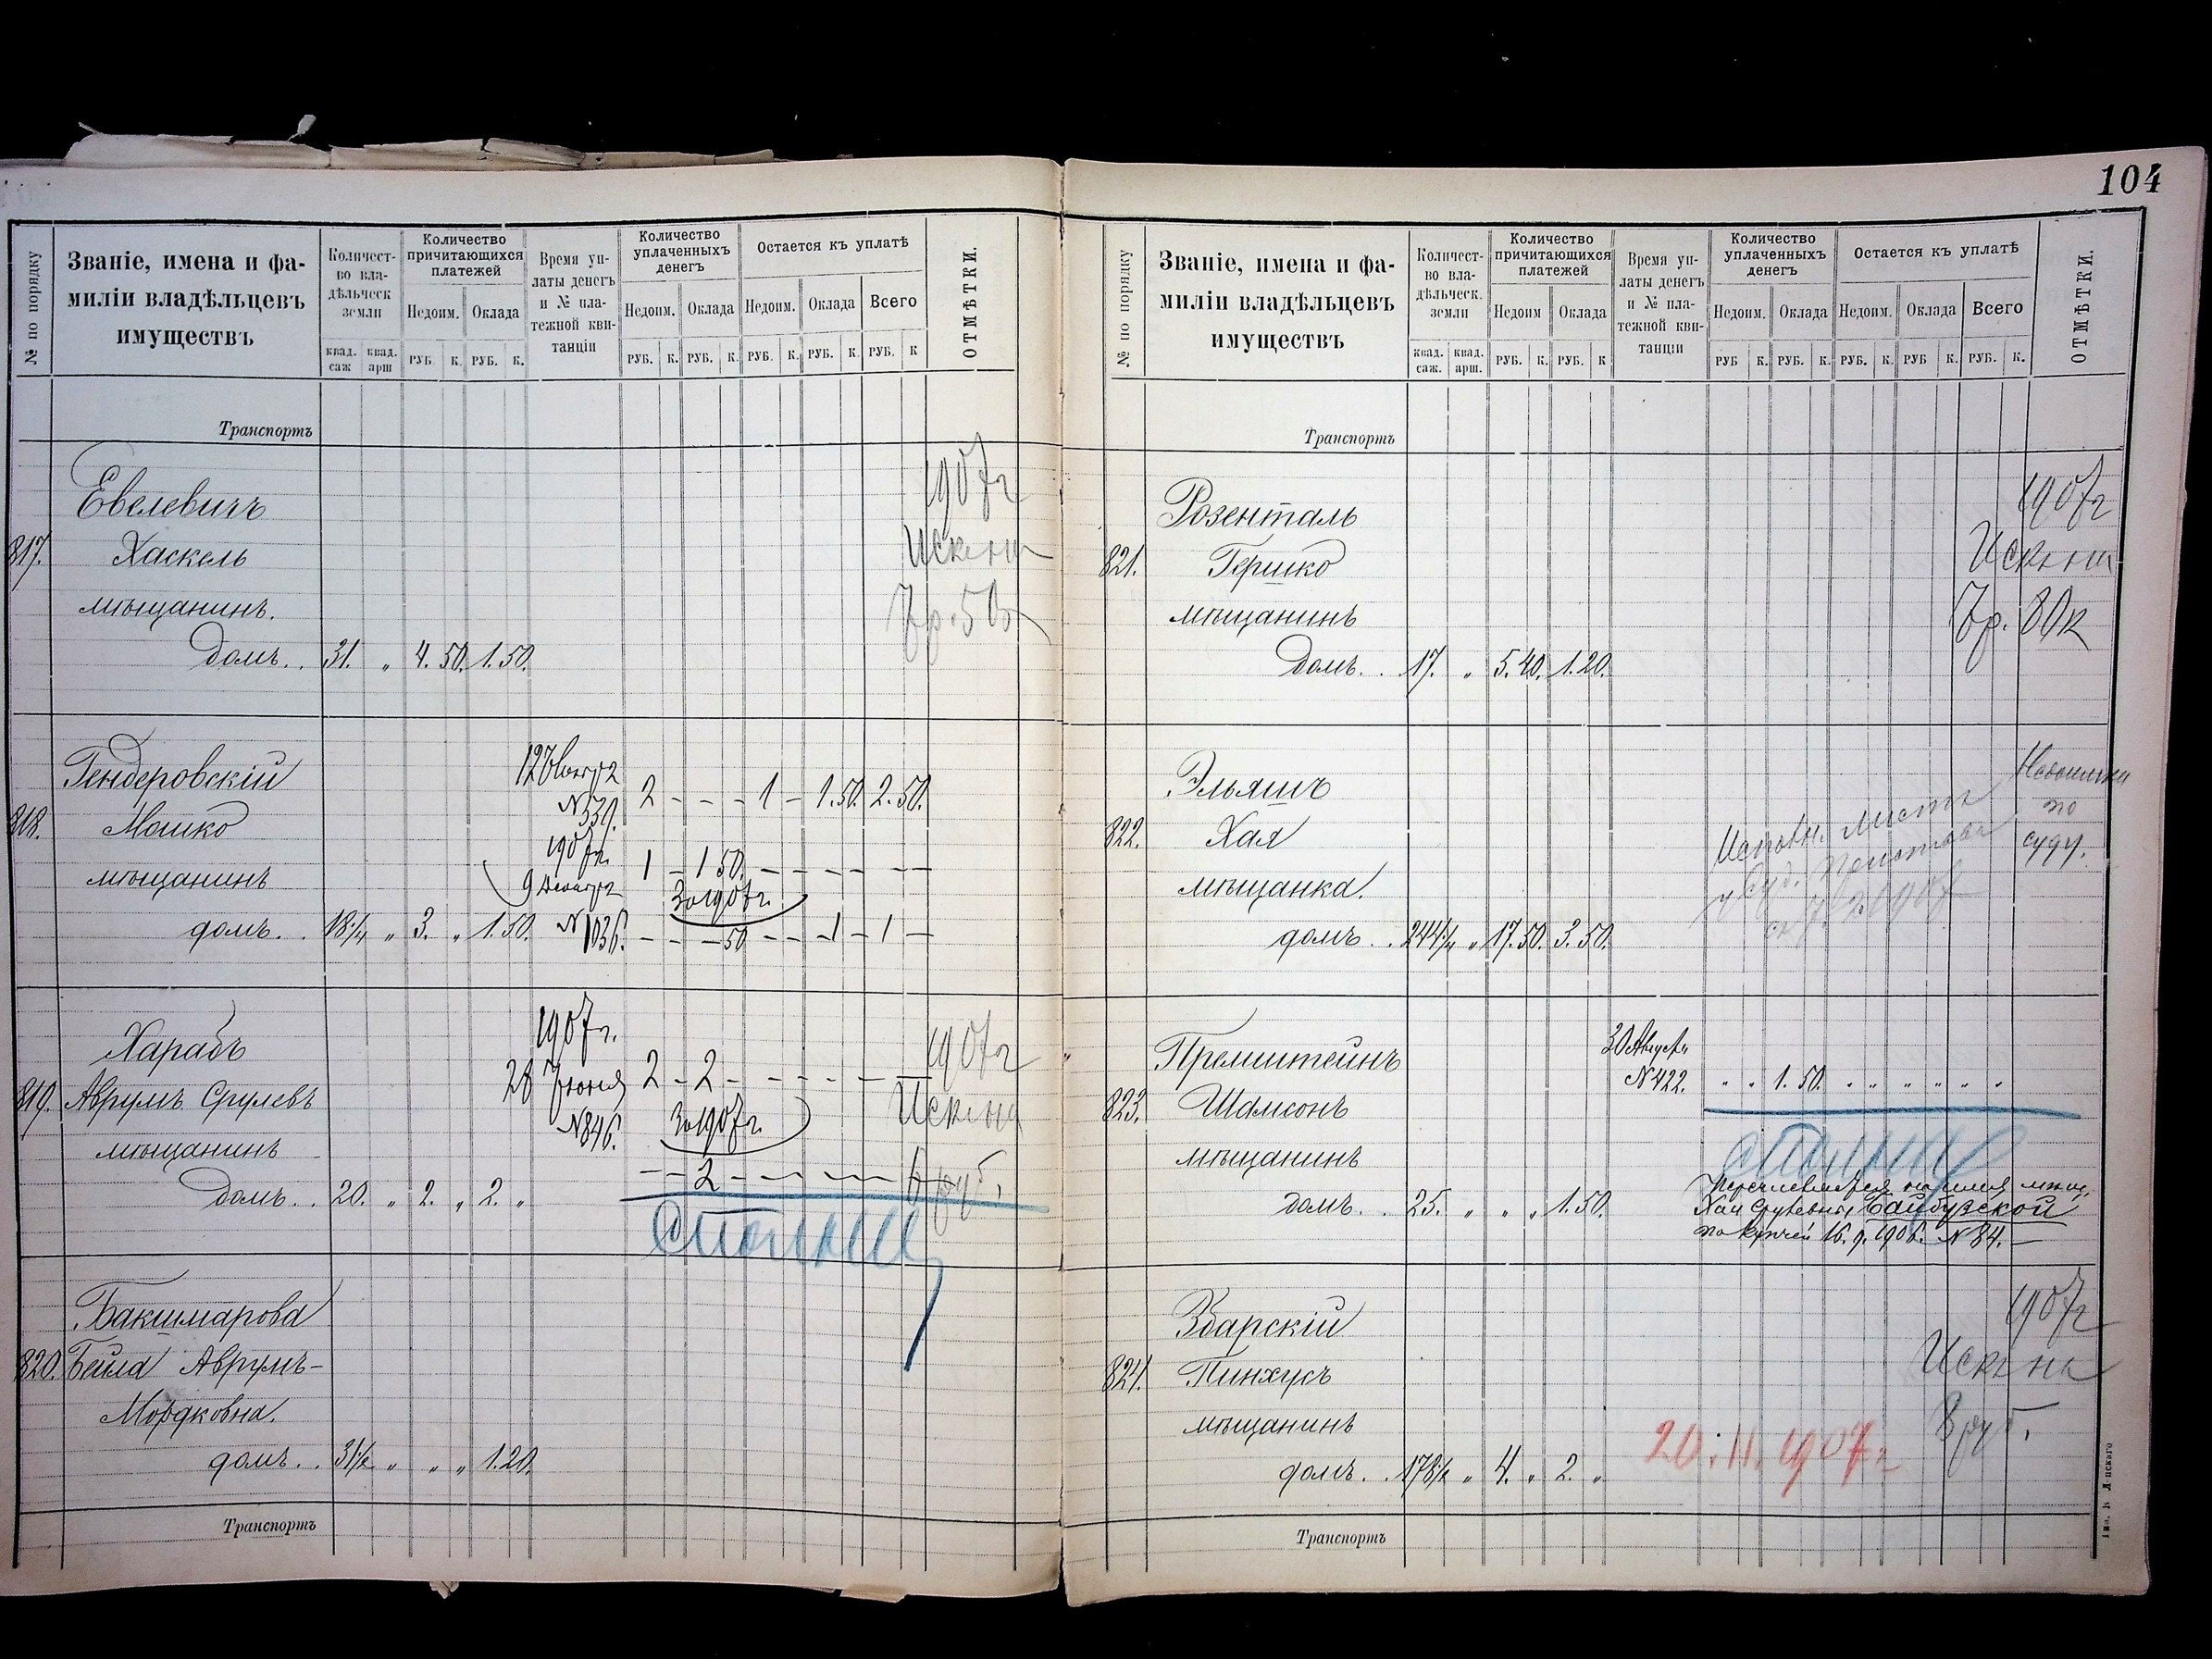 104
№ по порядку
Званіе, имена и фа-
миліи владѣльцевъ
имуществъ
Количест-
во вла-
дѣльческ
земли
квад. саж квад. арш
Количество
причитающихся
платежей
Недоим. Оклада
РУБ. К. РУБ. К.
Время уп-
латы денегъ
и № пла-
тежной кви-
танціи
Количество
уплаченныхъ
денегъ
Недоим. Оклада
РУБ. К. РУБ. К.
Остается къ уплатѣ
Недоим. Оклада Всего
РУБ. К. РУБ. К. РУБ. К
ОТМѢТКИ.
Транспортъ
Евелевичъ
817. Хаскель
мѣщанинъ.
домъ.. 31. „ 4. 50. 1. 50.
1907г
7р. 50к
Гендеровскій
818. Мошко
мѣщанинъ
домъ.. 18¼ „ 3. „ 1. 50.
N 530. 2 - - - 1 - 1. 50. 2. 50.
1907г.
1 - 1 50. - - - - - -
9 Декабря
За 1907г.
N 1036. - - - 50 - - - 1 - 1 -
Харабъ
819. Аврумъ Срулевъ
мѣщанинъ
домъ.. 20. „ 2. „ 2. „
1907г.
28 Іюня 2 - 2 - - - - - -
N 846. За 1907г.
- - 2 - - - -
1907г
6 руб.
Бакшмарова
820. Бейла Аврумъ-
Мордковна.
домъ.. 31½ „ „ „ 1. 20.
Транспортъ
№ по порядку
Званіе, имена и фа-
миліи владѣльцевъ
имуществъ
Количест-
во вла-
дѣльческ.
земли
квад. саж. квад. арш.
Количество
причитающихся
платежей
Недоим Оклада
РУБ. К. РУБ. К
Время уп-
латы денегъ
и № пла-
тежной кви-
танціи
Количество
уплаченныхъ
денегъ
Недоим. Оклада
РУБ К. РУБ. К.
Остается къ уплатѣ
Недоим. Оклада Всего
РУБ. К. РУБ К. РУБ. К.
ОТМѢТКИ.
Транспортъ
Розенталь
821. Гершко
мѣщанинъ
домъ.. 17. „ 5. 40. 1. 20.
1907г
80к
Эльяшъ
822. Хая
мѣщанка.
домъ.. 244¼ „ 17. 50. 3. 50.
Исполн. листъ
у Суд. Пристава
1907
Недоимка
по
суду.
Премиштейнъ
823. Шамсонъ
мѣщанинъ
домъ.. 25. „ „ „ 1. 50.
30 Августа
N 422. „ „ 1. 50. „ „ „ „ „ „
на имя мѣщ.
Хаи Срулевны Байбузской
по купчей 16. 9. 1906. N 84. —
Збарскій
824. Пинхусъ
мѣщанинъ
домъ.. 178½ „ 4. „ 2. „
20. 11. 1907 г
1907г
8 руб.
Транспортъ